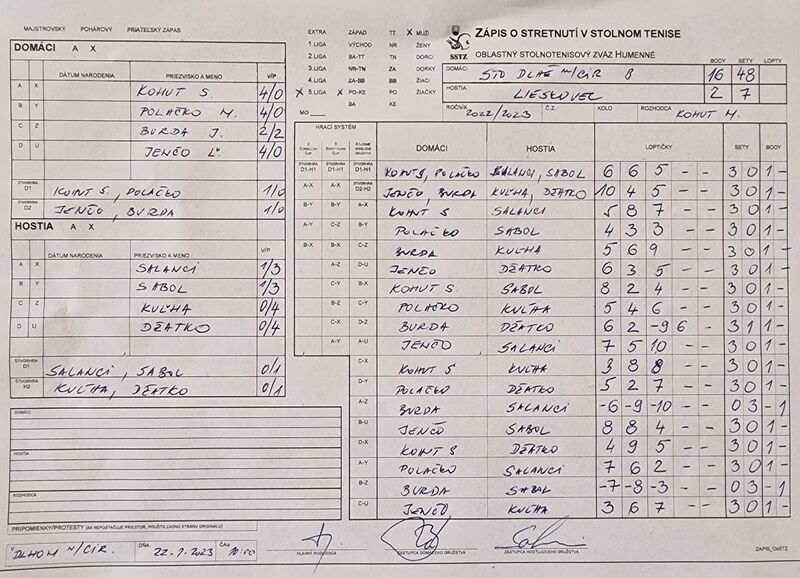 MAJSTROVSKÝ POHÁROVÝ PRIATEĽSKÝ ZÁPAS
DOMÁCI A X
DÁTUM NARODENIA PRIEZVISKO A MENO V/P
A X KOHUT S. 4/0
B Y POLAČKO M. 4/0
C Z BURDA J. 2/2
D U JENČO Ľ. 4/0
ŠTVORHRA D1 KOHUT S, POLAČKO 1/0
ŠTVORHRA D2 JENČO, BURDA 1/0
HOSTIA A X
DÁTUM NARODENIA PRIEZVISKO A MENO V/P
A X SALANCI 1/3
B Y SABOL 1/3
C Z KUĽHA 0/4
D U DŽATKO 0/4
ŠTVORHRA D1 SALANCI, SABOL 0/1
ŠTVORHRA H2 KUĽHA, DŽATKO 0/1
DOMÁCI
HOSTIA
ROZHODCA
PRIPOMIENKY/PROTESTY (AK NEPOSTAČUJE PRIESTOR, POUŽITE ZADNÚ STRANU ORIGINÁLU)
V DLHOM N/CIR. DŇA 22-1-2023 ČAS 10:00
EXTRA ZÁPAD TT X MUŽI
1.LIGA VÝCHOD NR ŽENY
2.LIGA BA-TT TN DORCI
3.LIGA NR-TN ZA DORKY
4.LIGA ZA-BB BB ŽIACI
X 5.LIGA X PO-KE PO ŽIAČKY
MO BA KE
SSTZ
ZÁPIS O STRETNUTÍ V STOLNOM TENISE
OBLASTNÝ STOLNOTENISOVÝ ZVÄZ HUMENNÉ
BODY SETY LOPTY
DOMÁCI: STO DLHÉ N/CIR B 16 48
HOSTIA LIESKOVEC 2 7
ROČNÍK 2022/2023 Č.Z. KOLO ROZHODCA KOHUT M.
HRACÍ SYSTÉM DOMÁCI HOSTIA LOPTIČKY SETY BODY
ŠTVORHRA D1-H1 D1-H1 D1-H1 KOHUT S, POLAČKO SALANCI, SABOL 6 6 5 - - 3 0 1 -
A-X A-X D2-H2 JENČO, BURDA KUĽHA, DŽATKO 10 4 5 - - 3 0 1 -
B-Y B-Y A-X KOHUT S SALANCI 5 8 7 - - 3 0 1 -
A-Y C-Z B-Y POLAČKO SABOL 4 3 3 - - 3 0 1 -
B-X B-X C-Z BURDA KUĽHA 5 6 9 - - 3 0 1 -
A-Z D-U JENČO DŽATKO 6 3 5 - - 3 0 1 -
C-Y B-X KOHUT S. SABOL 8 2 4 - - 3 0 1 -
B-Z C-Y POLAČKO KUĽHA 5 4 6 - - 3 0 1 -
C-X D-Z BURDA DŽATKO 6 2 -9 6 - 3 1 1 -
A-Y A-U JENČO SALANCI 7 5 10 - - 3 0 1 -
C-X KOHUT S KUĽHA 3 8 8 - - 3 0 1 -
D-Y POLAČKO DŽATKO 5 2 7 - - 3 0 1 -
A-Z BURDA SALANCI -6 -9 -10 - - 0 3 - 1
B-U JENČO SABOL 8 8 4 - - 3 0 1 -
D-X KOHUT S DŽATKO 4 9 5 - - 3 0 1 -
A-Y POLAČKO SALANCI 7 6 2 - - 3 0 1 -
B-Z BURDA SABOL -7 -8 -3 - - 0 3 - 1
C-U JENČO KUĽHA 3 6 7 - - 3 0 1 -
HLAVNÝ ROZHODCA ZÁSTUPCA DOMÁCEHO DRUŽSTVA ZÁSTUPCA HOSŤUJÚCEHO DRUŽSTVA ZÁPIS_ObSTZ